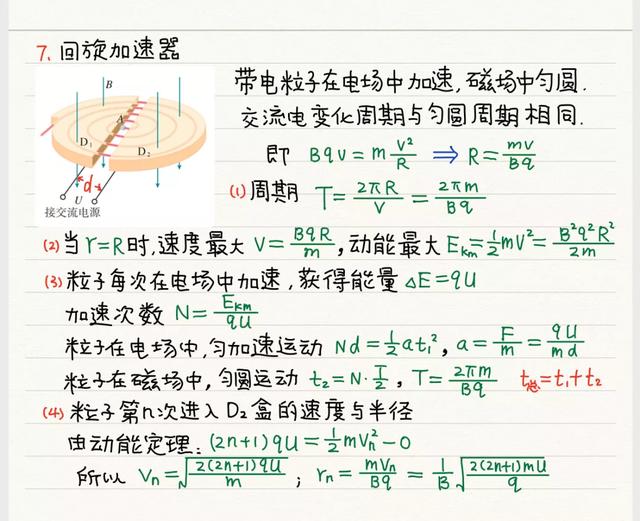 7. 回旋加速器
B
A
D₁
D₂
d
U
接交流电源
带电粒子在电场中加速,磁场中匀圆.
交流电变化周期与匀圆周期相同.
即 Bqv=m v²/R ⇒ R=mv/Bq
(1)周期 T=2πR/V=2πm/Bq
(2)当r=R时,速度最大 V=BqR/m,动能最大Eₖₘ=½mV²=B²q²R²/2m
(3)粒子每次在电场中加速,获得能量 △E=qU
加速次数 N=Eₖₘ/qU
粒子在电场中,匀加速运动 Nd=½at₁², a=F/m=qU/md
粒子在磁场中,匀圆运动 t₂=N·T/2, T=2πm/Bq t总=t₁+t₂
(4)粒子第n次进入D₂盒的速度与半径
由动能定理:(2n+1)qU=½mVₙ²-0
所以 Vₙ=√(2(2n+1)qU/m) ; rₙ=mVₙ/Bq=1/B √(2(2n+1)mU/q)